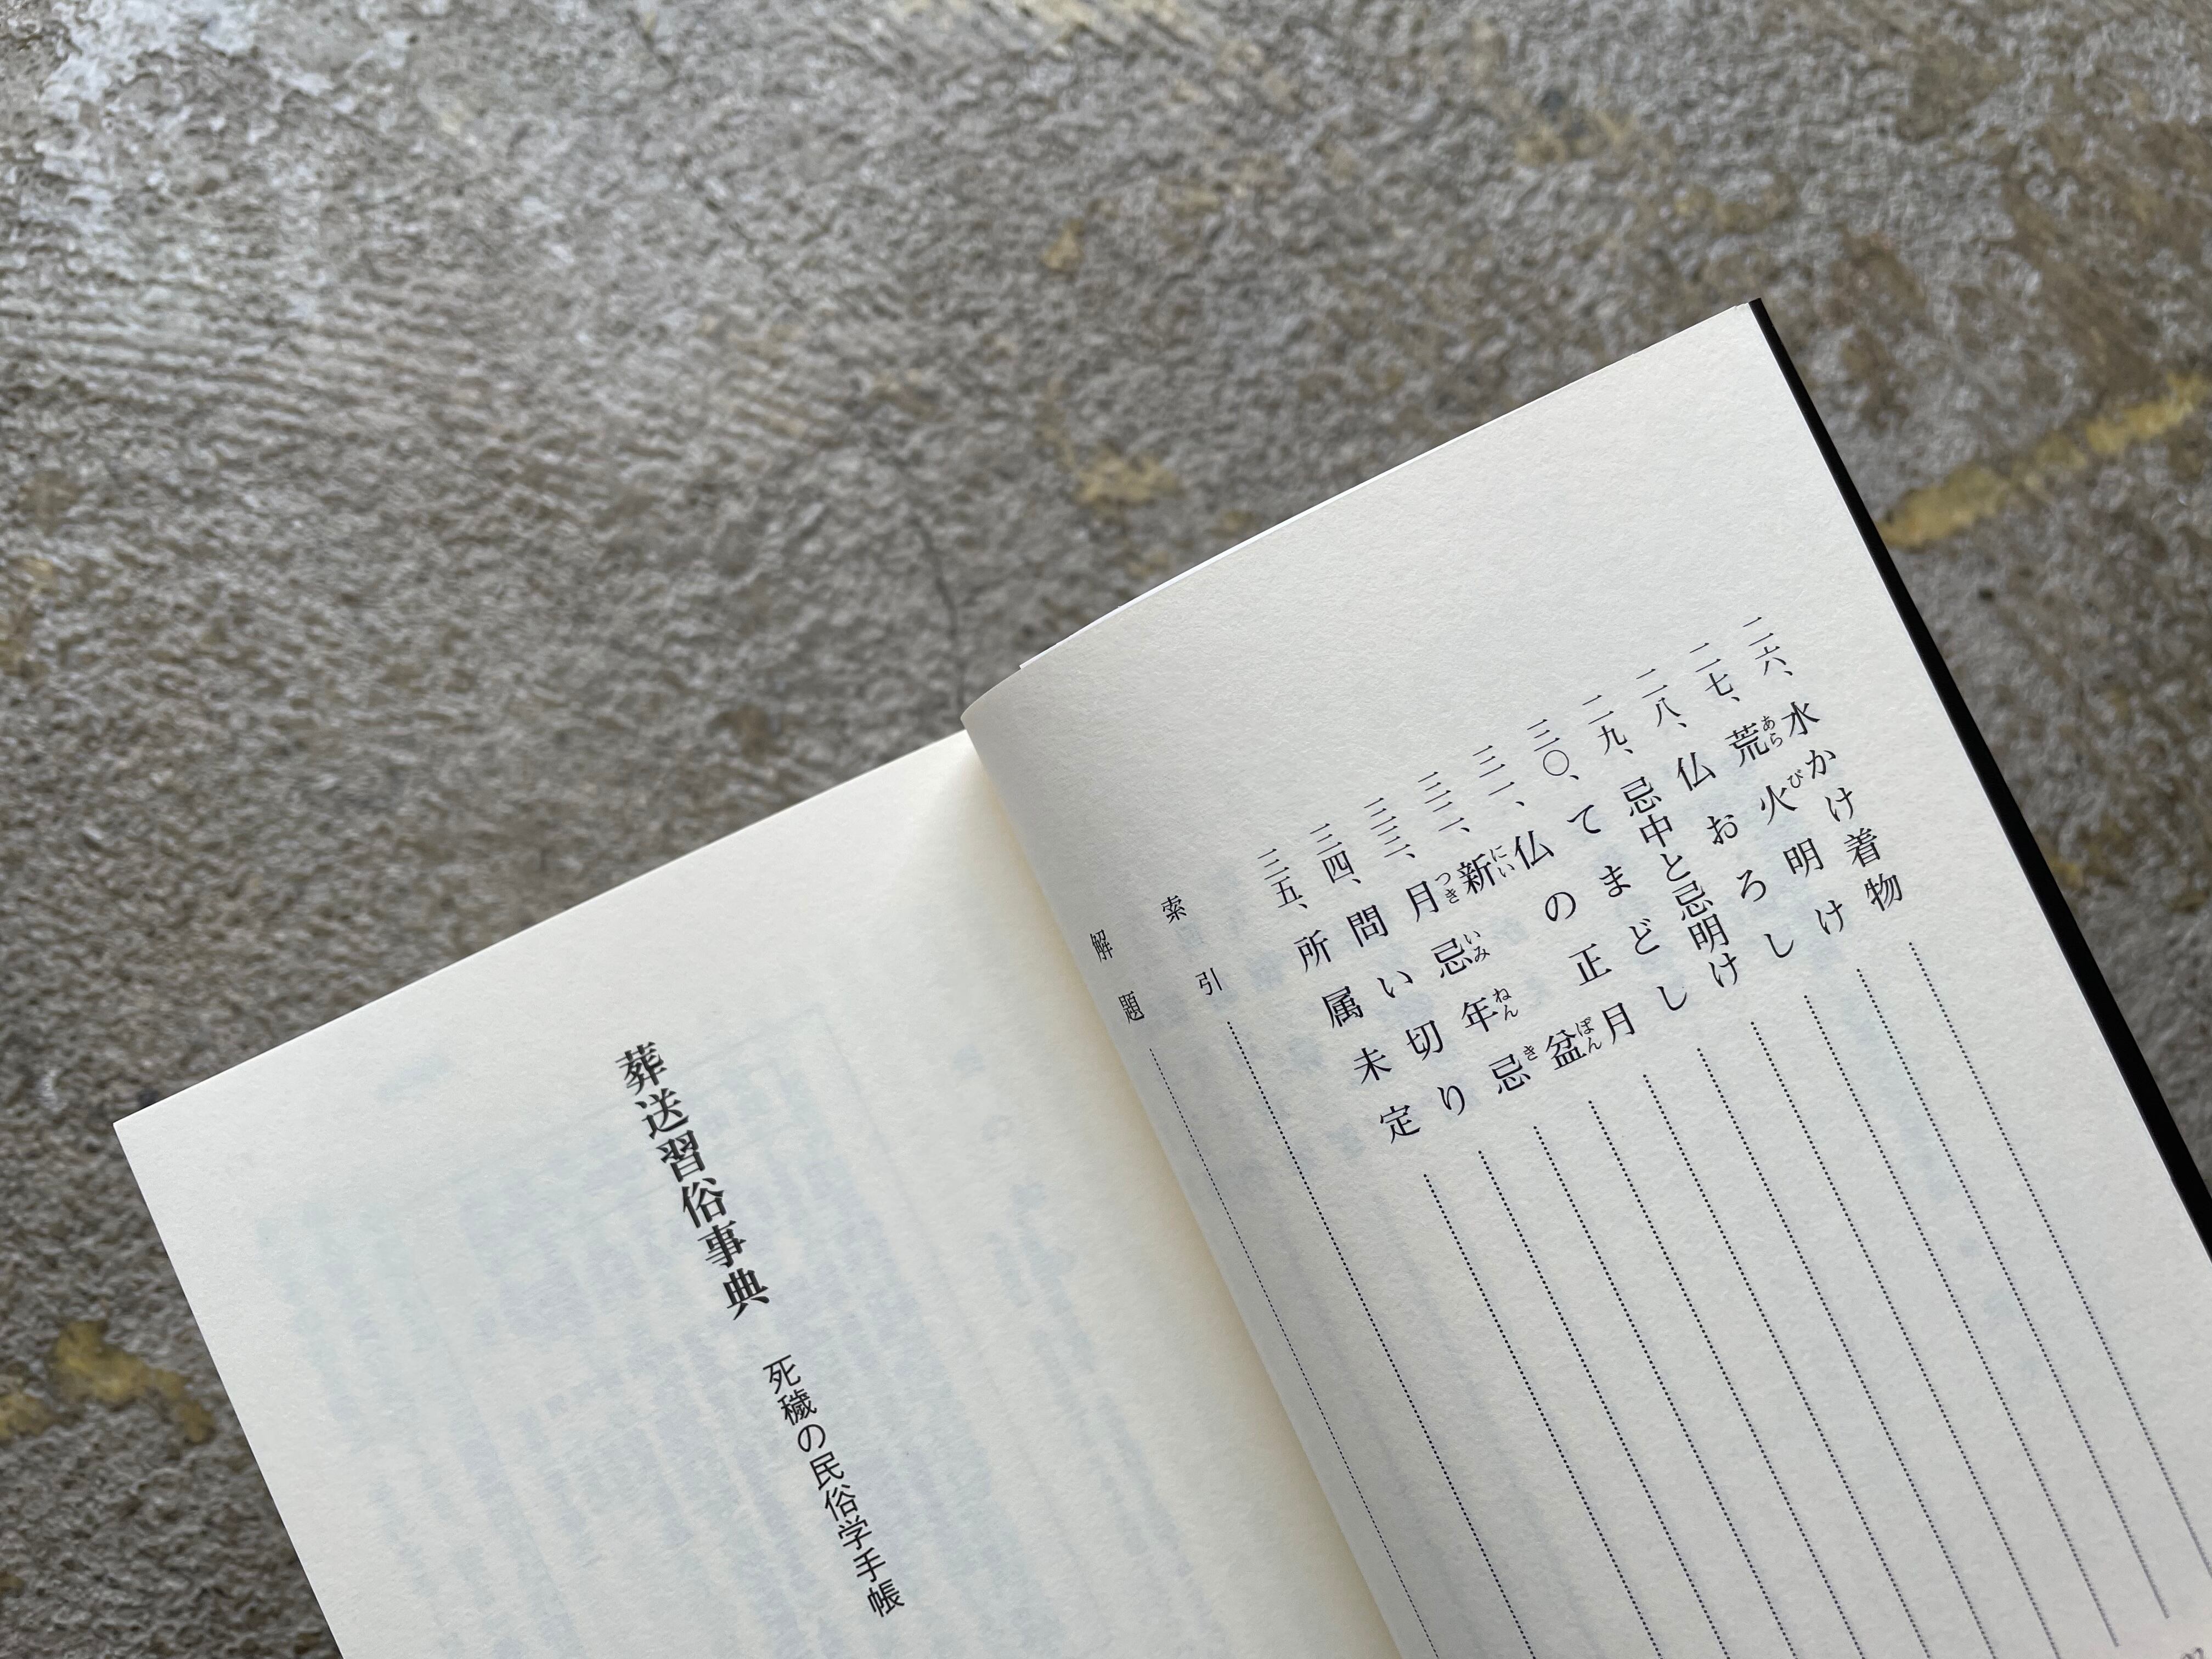 二六、水かけ着物
二七、荒火明け
あらび
二八、仏おろし
二九、忌中と忌明け
三〇、てまどし
三一、仏の正月
三二、新盆
にいぼん
三三、月忌年忌
つきいみねんき
三四、問い切り
三五、所属未定
索引
解題
葬送習俗事典 死穢の民俗学手帳